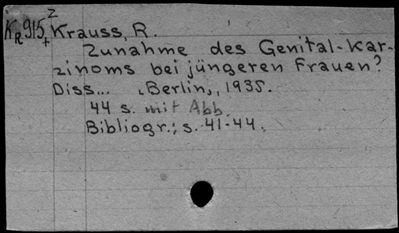 KR 915 z+ Krauss, R.
Zunahme des Genital-Kar-
zinoms bei jüngeren Frauen?
Diss... Berlin, 1935.
44 s. mit Abb.
Bibliogr.: s. 41-44.